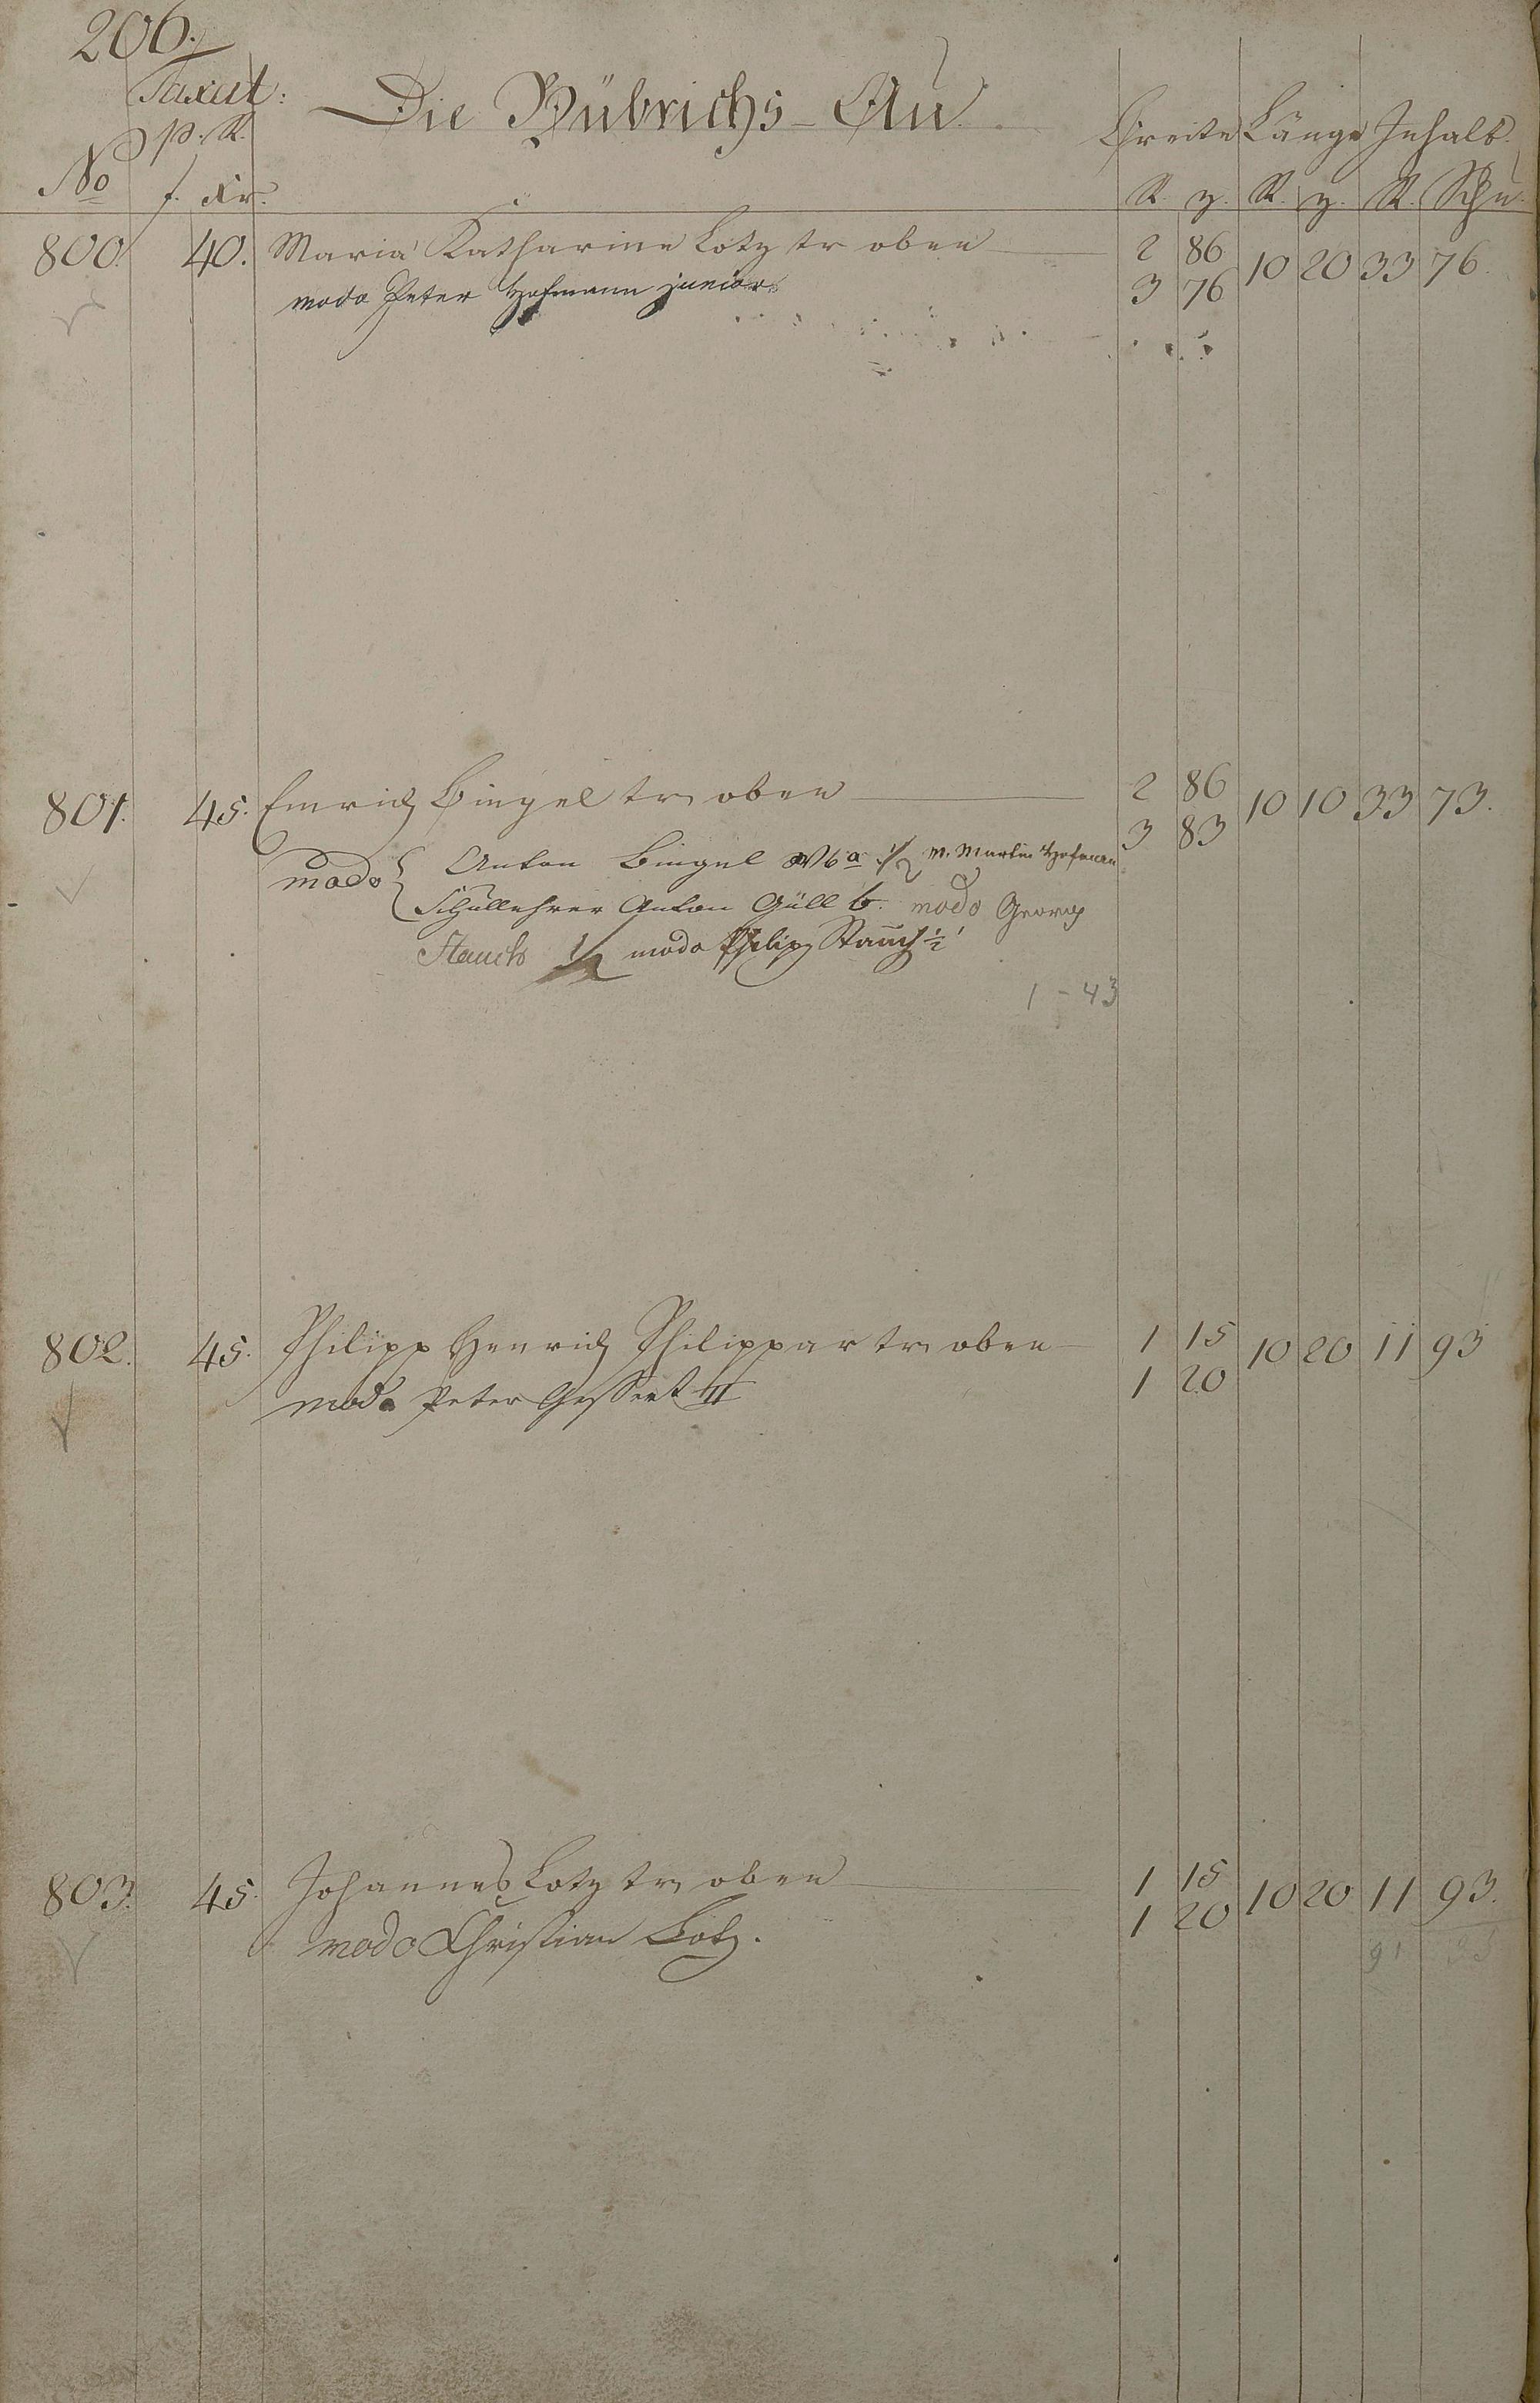 206.
Taxat:
p. R.
Die Rübrichs-Au
Breite Länge Inhalt.
No f. Xr. R. z. R. z. R. Schu.
800. 40. Maria Katharine Lotz tr oben 2 86 10 20 33 76.
modo Peter Hofmann junior. 3 76
801. 45. Emrich Bingel tr oben 2 86 10 10 33 73.
3 83
modo { Anton Bingel a ½ m. Martin Hofmann
Schullehrer Anton Güll b. modo Georg
Stauch ½ modo Philipp Stauch ½
1 - 43
802. 45. Philipp Henrich Philippar tr oben 1 15 10 20 11 93
modo Peter III 1 20
803. 45. Johannes Lotz tr oben 1 15 10 20 11 93.
modo Christian Lotz. 1 20
91